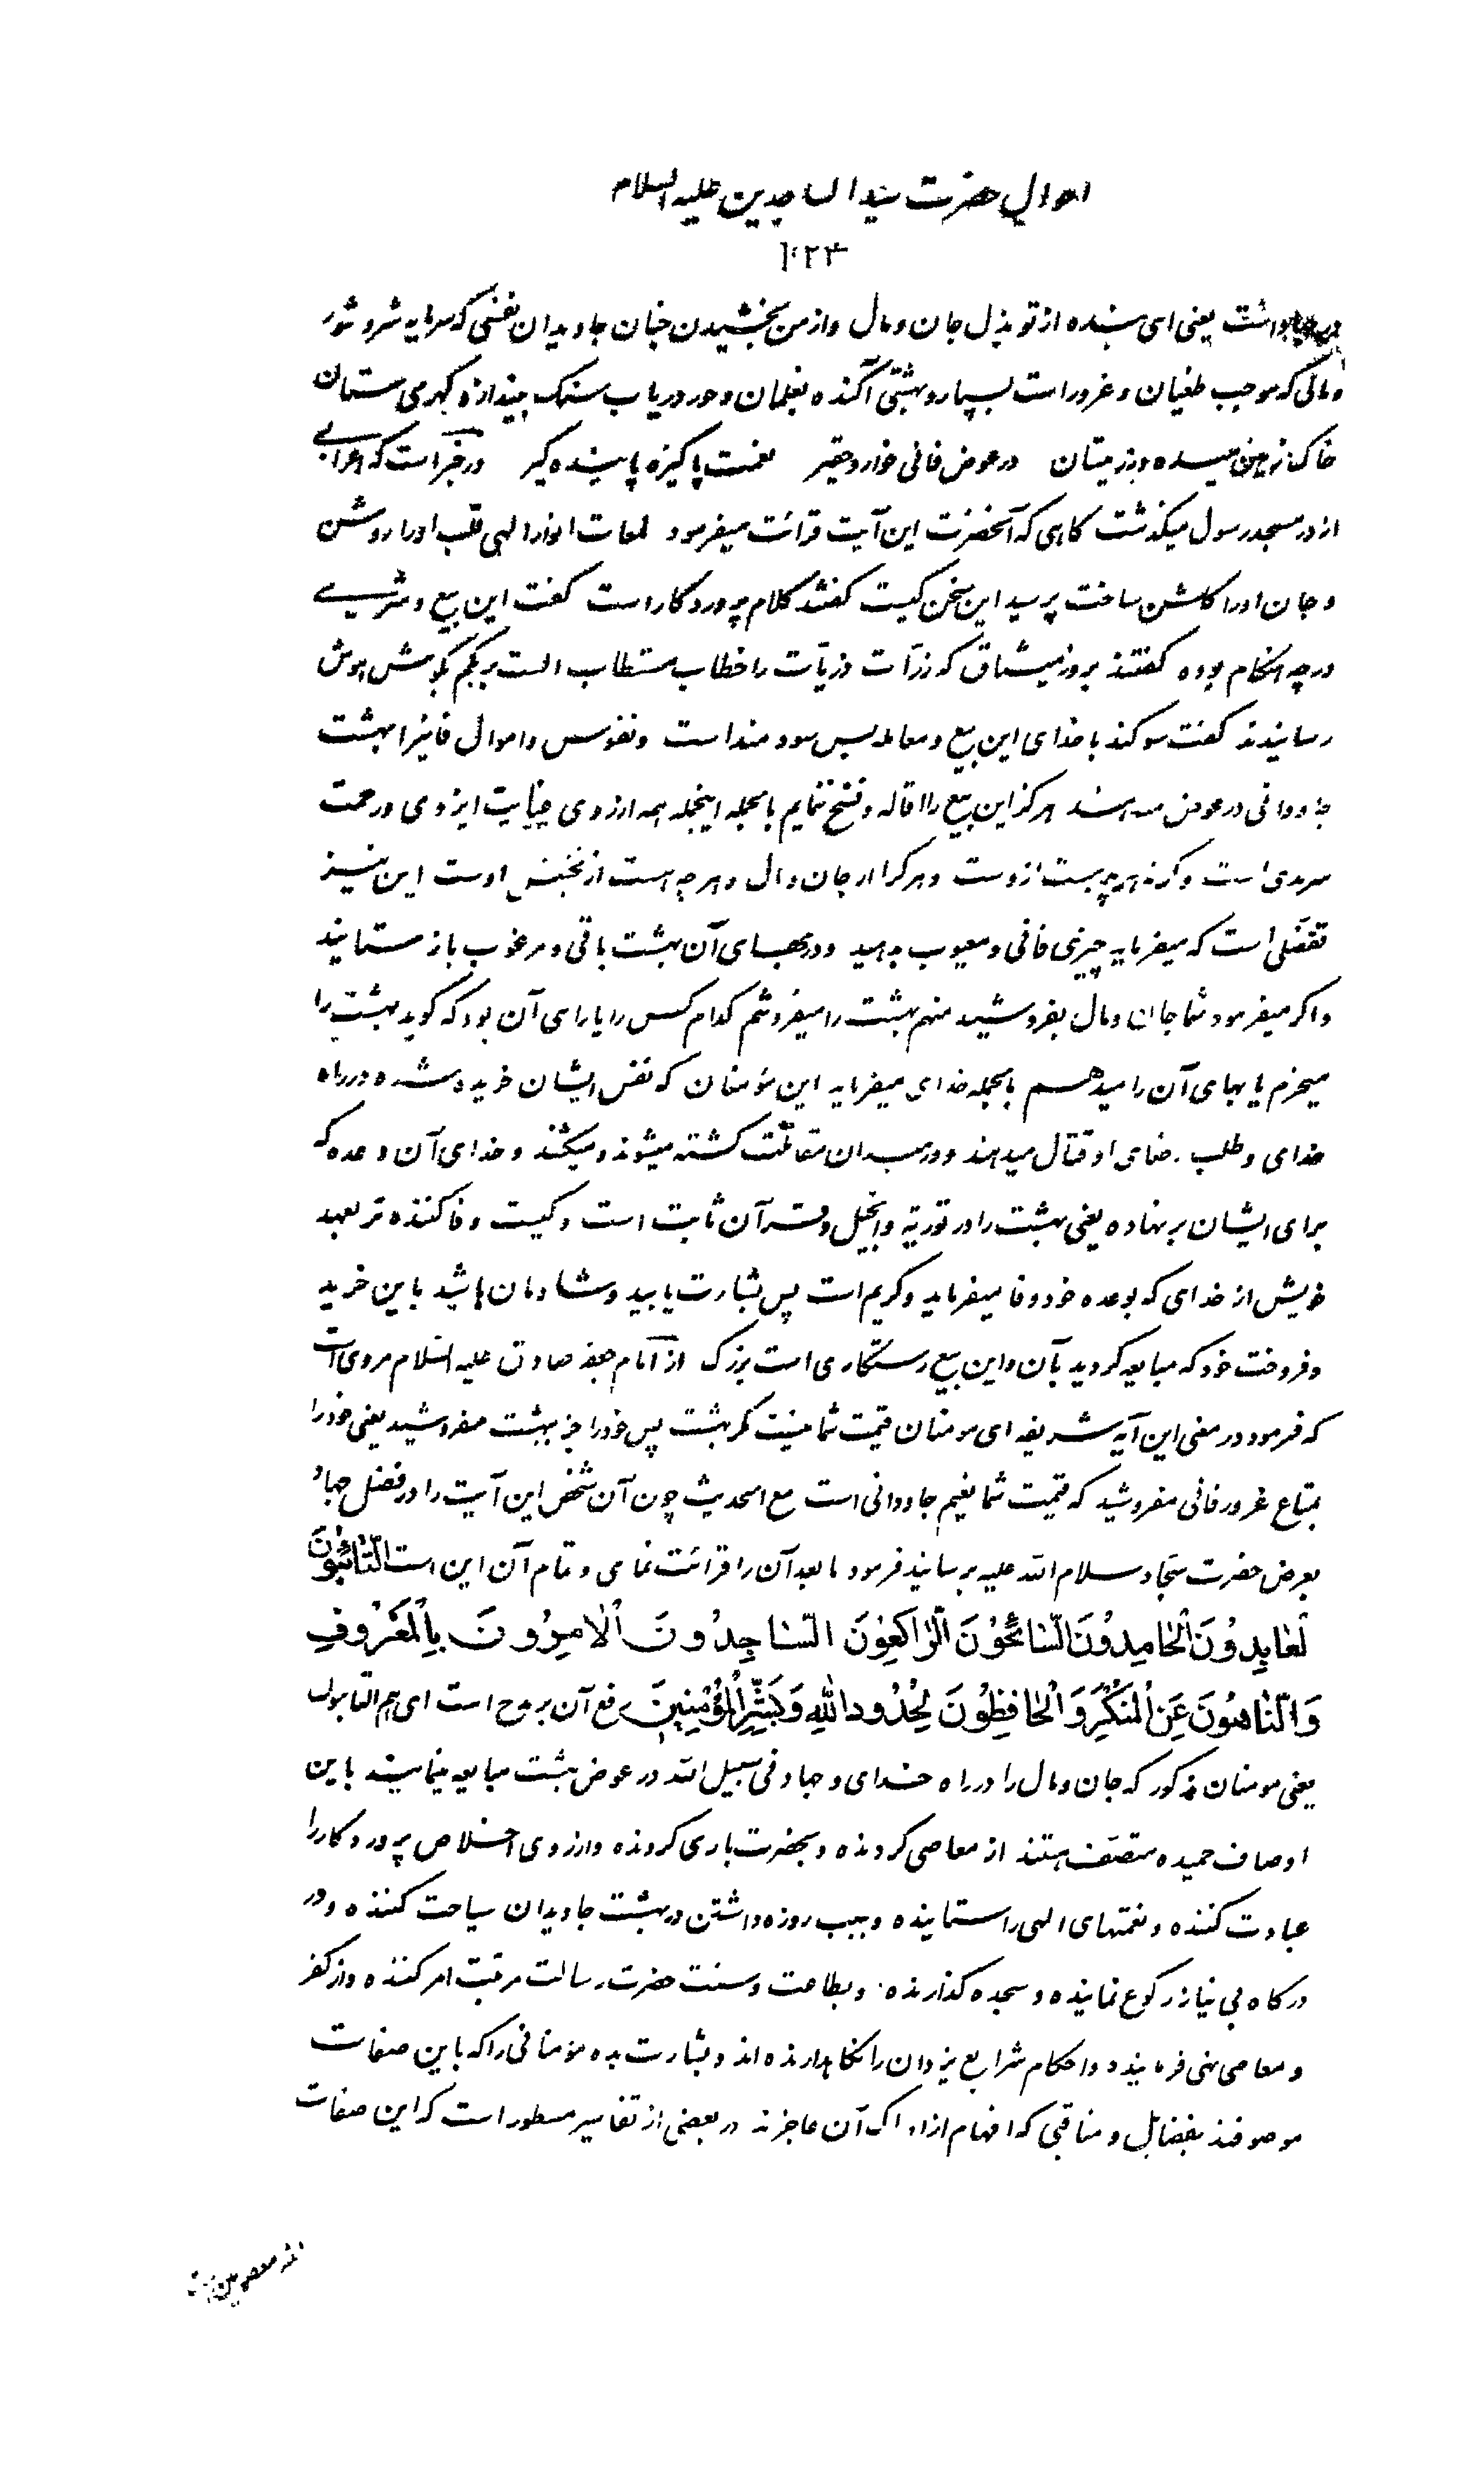 احوال حضرت سید الساجدین علیه السلام
۱۰۲۳
یعنی ای بنده از تو بذل جان و مال و از من بخشیدن جنان جاویدان نفسی که سرمایه شر و شور
و مالی که موجب طغیان و غرور است بسپار و بهشتی آکنده بغلمان و حور دریاب سنک بینداز و کهر می ستان
خاک زمین میده و زر میستان در عوض فانی خوار و حقیر نعمت پاکیزه پاینده کیر در خبر است که اعرابی
از در مسجد رسول میکذشت کاهی که آنحضرت این آیت قرائت میفرمود لمعات انوار الهی قلب او را روشن
و جان او را کلشن ساخت پرسید این سخن کیست کفتند کلام پروردکار است کفت این بیع و شری
در چه هنکام بوده کفتند بروز میثاق که ذرات ذریات را خطاب مستطاب الست بربکم بکوش هوش
رسانیدند کفت سوکند با خدای این بیع و معامله بس سودمند است و نفوس و اموال فانیرا بهشت
جاودانی در عوض میدهند هرکز این بیع را اقاله و فسخ ننمایم بالجمله اینجمله همه از روی عنایت ایزدی و رحمت
سرمدی است و کرنه هر چه هست ازوست و هر کرا از جان و مال و هر چه هست از بخشش اوست این نیز
تفضلی است که میفرماید چیزی فانی و معیوب بدهید و در بهای آن بهشت باقی و مرغوب باز ستانید
و اکر میفرمود شما جان و مال بفروشید منهم بهشت را میفروشم کدام کس را یارای آن بود که کوید بهشت را
میخرم یا بهای آن را میدهم بالجمله خدای میفرماید این مؤمنان که نفس ایشان خریده شده در راه
خدای و طلب رضای او قتال میدهند و در میدان مقاتلت کشته میشوند و میکشند و خدای آن وعده که
برای ایشان بر نهاده یعنی بهشت را در توریة و انجیل و قرآن ثابت است و کیست وفا کننده تر بعهد
خویش از خدای که بوعده خود وفا میفرماید و کریم است پس بشارت یابید و شادمان باشید باین خرید
و فروخت خود که مبایعه کردید بآن و این بیع رستکاری است بزرک از امام جعفر صادق علیه السلام مروی است
که فرمود در معنی این آیه شریفه ای مومنان قیمت شما نیست مکر بهشت پس خود را جز ببهشت مفروشید یعنی خود را
بمتاع غرور فانی مفروشید که قیمت شما نعیم جاودانی است مع الحدیث چون آن شخص این آیت را در فضل جهاد
بعرض حضرت سجاد سلام الله علیه برسانید فرمود ما بعد آن را قرائت نمای و تمام آن این است التَّائِبُونَ
الْعَابِدُونَ الْحَامِدُونَ السَّائِحُونَ الرَّاكِعُونَ السَّاجِدُونَ الْآمِرُونَ بِالْمَعْرُوفِ
وَالنَّاهُونَ عَنِ الْمُنْكَرِ وَالْحَافِظُونَ لِحُدُودِ اللهِ وَبَشِّرِ الْمُؤْمِنِينَ رفع آن بر مدح است ای هم التائبون
یعنی مومنان مذکور که جان و مال را در راه خدای و جهاد فی سبیل الله در عوض بهشت مبایعه مینمایند باین
اوصاف حمیده متصف هستند از معاصی کرونده و بحضرت باری کرونده و از روی اخلاص پروردکار را
عبادت کننده و نعمتهای الهی را ستاینده و بسبب روزه داشتن در بهشت جاویدان سیاحت کننده و در
درکاه بی نیاز رکوع نماینده و سجده کذارنده و بطاعت و سنت حضرت رسالت مرتبت امر کننده و از کفر
و معاصی نهی فرماینده و احکام شرایع یزدان را نکاهدارنده اند و بشارت بده مؤمنانی را که باین صفات
موصوفند بفضایل و مناقبی که افهام از ادراک آن عاجزند در بعضی از تفاسیر مسطور است که این صفات